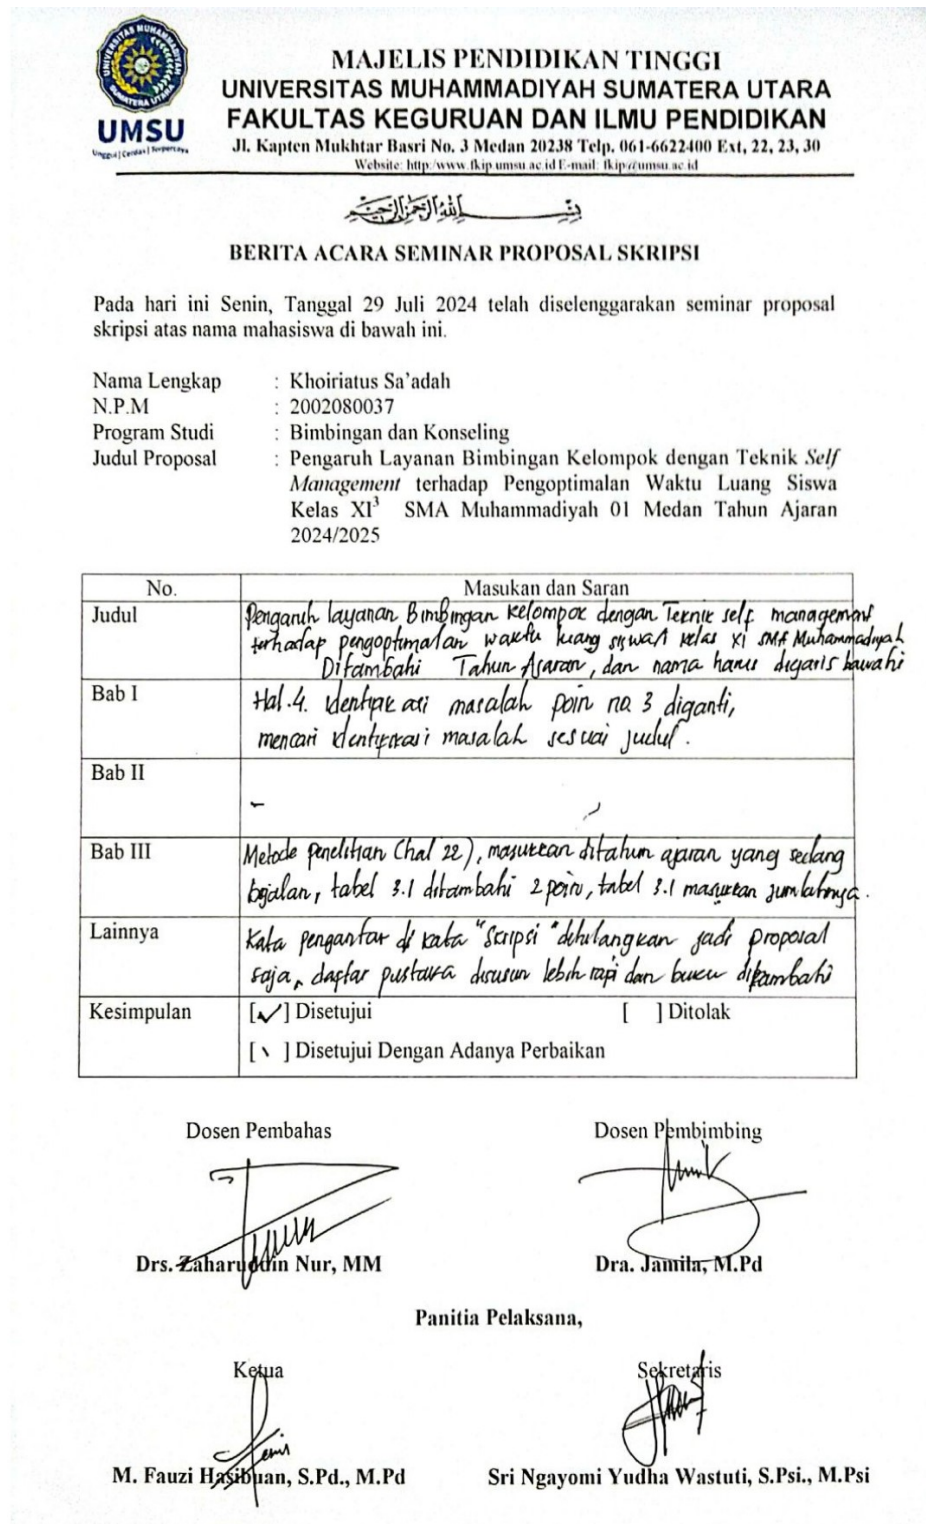 UNIVERSITAS MUHAMMADIYAH SUMATERA UTARA
UMSU
Unggul | Cerdas | Terpercaya
MAJELIS PENDIDIKAN TINGGI
UNIVERSITAS MUHAMMADIYAH SUMATERA UTARA
FAKULTAS KEGURUAN DAN ILMU PENDIDIKAN
Jl. Kapten Mukhtar Basri No. 3 Medan 20238 Telp. 061-6622400 Ext, 22, 23, 30
Website: http:/www.fkip.umsu.ac.id E-mail: fkip@umsu.ac.id
بِسْمِ اللهِ الرَّحْمٰنِ الرَّحِيْمِ
BERITA ACARA SEMINAR PROPOSAL SKRIPSI
Pada hari ini Senin, Tanggal 29 Juli 2024 telah diselenggarakan seminar proposal
skripsi atas nama mahasiswa di bawah ini.
Nama Lengkap : Khoiriatus Sa'adah
N.P.M : 2002080037
Program Studi : Bimbingan dan Konseling
Judul Proposal : Pengaruh Layanan Bimbingan Kelompok dengan Teknik Self
Management terhadap Pengoptimalan Waktu Luang Siswa
Kelas XI³ SMA Muhammadiyah 01 Medan Tahun Ajaran
2024/2025
No. Masukan dan Saran
Judul Pengaruh layanan Bimbingan Kelompok dengan Teknik self management
terhadap pengoptimalan waktu luang siswa/i kelas XI SMA Muhammadiyah
Ditambahi Tahun Ajaran, dan nama harus digaris bawahi
Bab I Hal.4. Identifikasi masalah poin no 3 diganti,
mencari identifikasi masalah sesuai judul.
Bab II
-
Bab III Metode penelitian (hal 22), masukkan ditahun ajaran yang sedang
bejalan, tabel 3.1 ditambahi 2 poin, tabel 3.1 masukkan jumlahnya.
Lainnya Kata pengantar di kata "Skripsi" dihilangkan jadi proposal
saja, daftar pustaka disusun lebih rapi dan buku ditambahi
Kesimpulan [✓] Disetujui [ ] Ditolak
[ \ ] Disetujui Dengan Adanya Perbaikan
Dosen Pembahas Dosen Pembimbing
Drs. Zaharuddin Nur, MM Dra. Jamila, M.Pd
Panitia Pelaksana,
Ketua Sekretaris
M. Fauzi Hasibuan, S.Pd., M.Pd Sri Ngayomi Yudha Wastuti, S.Psi., M.Psi